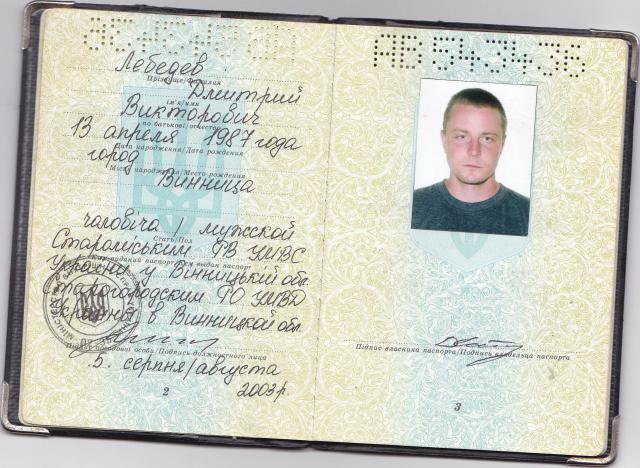 Лебедев
Прізвище/Фамилия
Дмитрий
ім'я/имя
Викторович
по батькові/отчество
13 апреля 1987 года
Дата народження/Дата рождения
город
Місце народження/Место рождения
Винница
чоловіча / мужской
Стать/Пол
Староміським РВ УМВС
Ким виданий паспорт/Кем выдан паспорт
України у Вінницькій обл.
Старогородским РО УМВД
Украины в Винницкой обл.
Підпис посадової особи/Подпись должностного лица
5. серпня/августа
2003р.
2
АВ 543436
Підпис власника паспорта/Подпись владельца паспорта
3